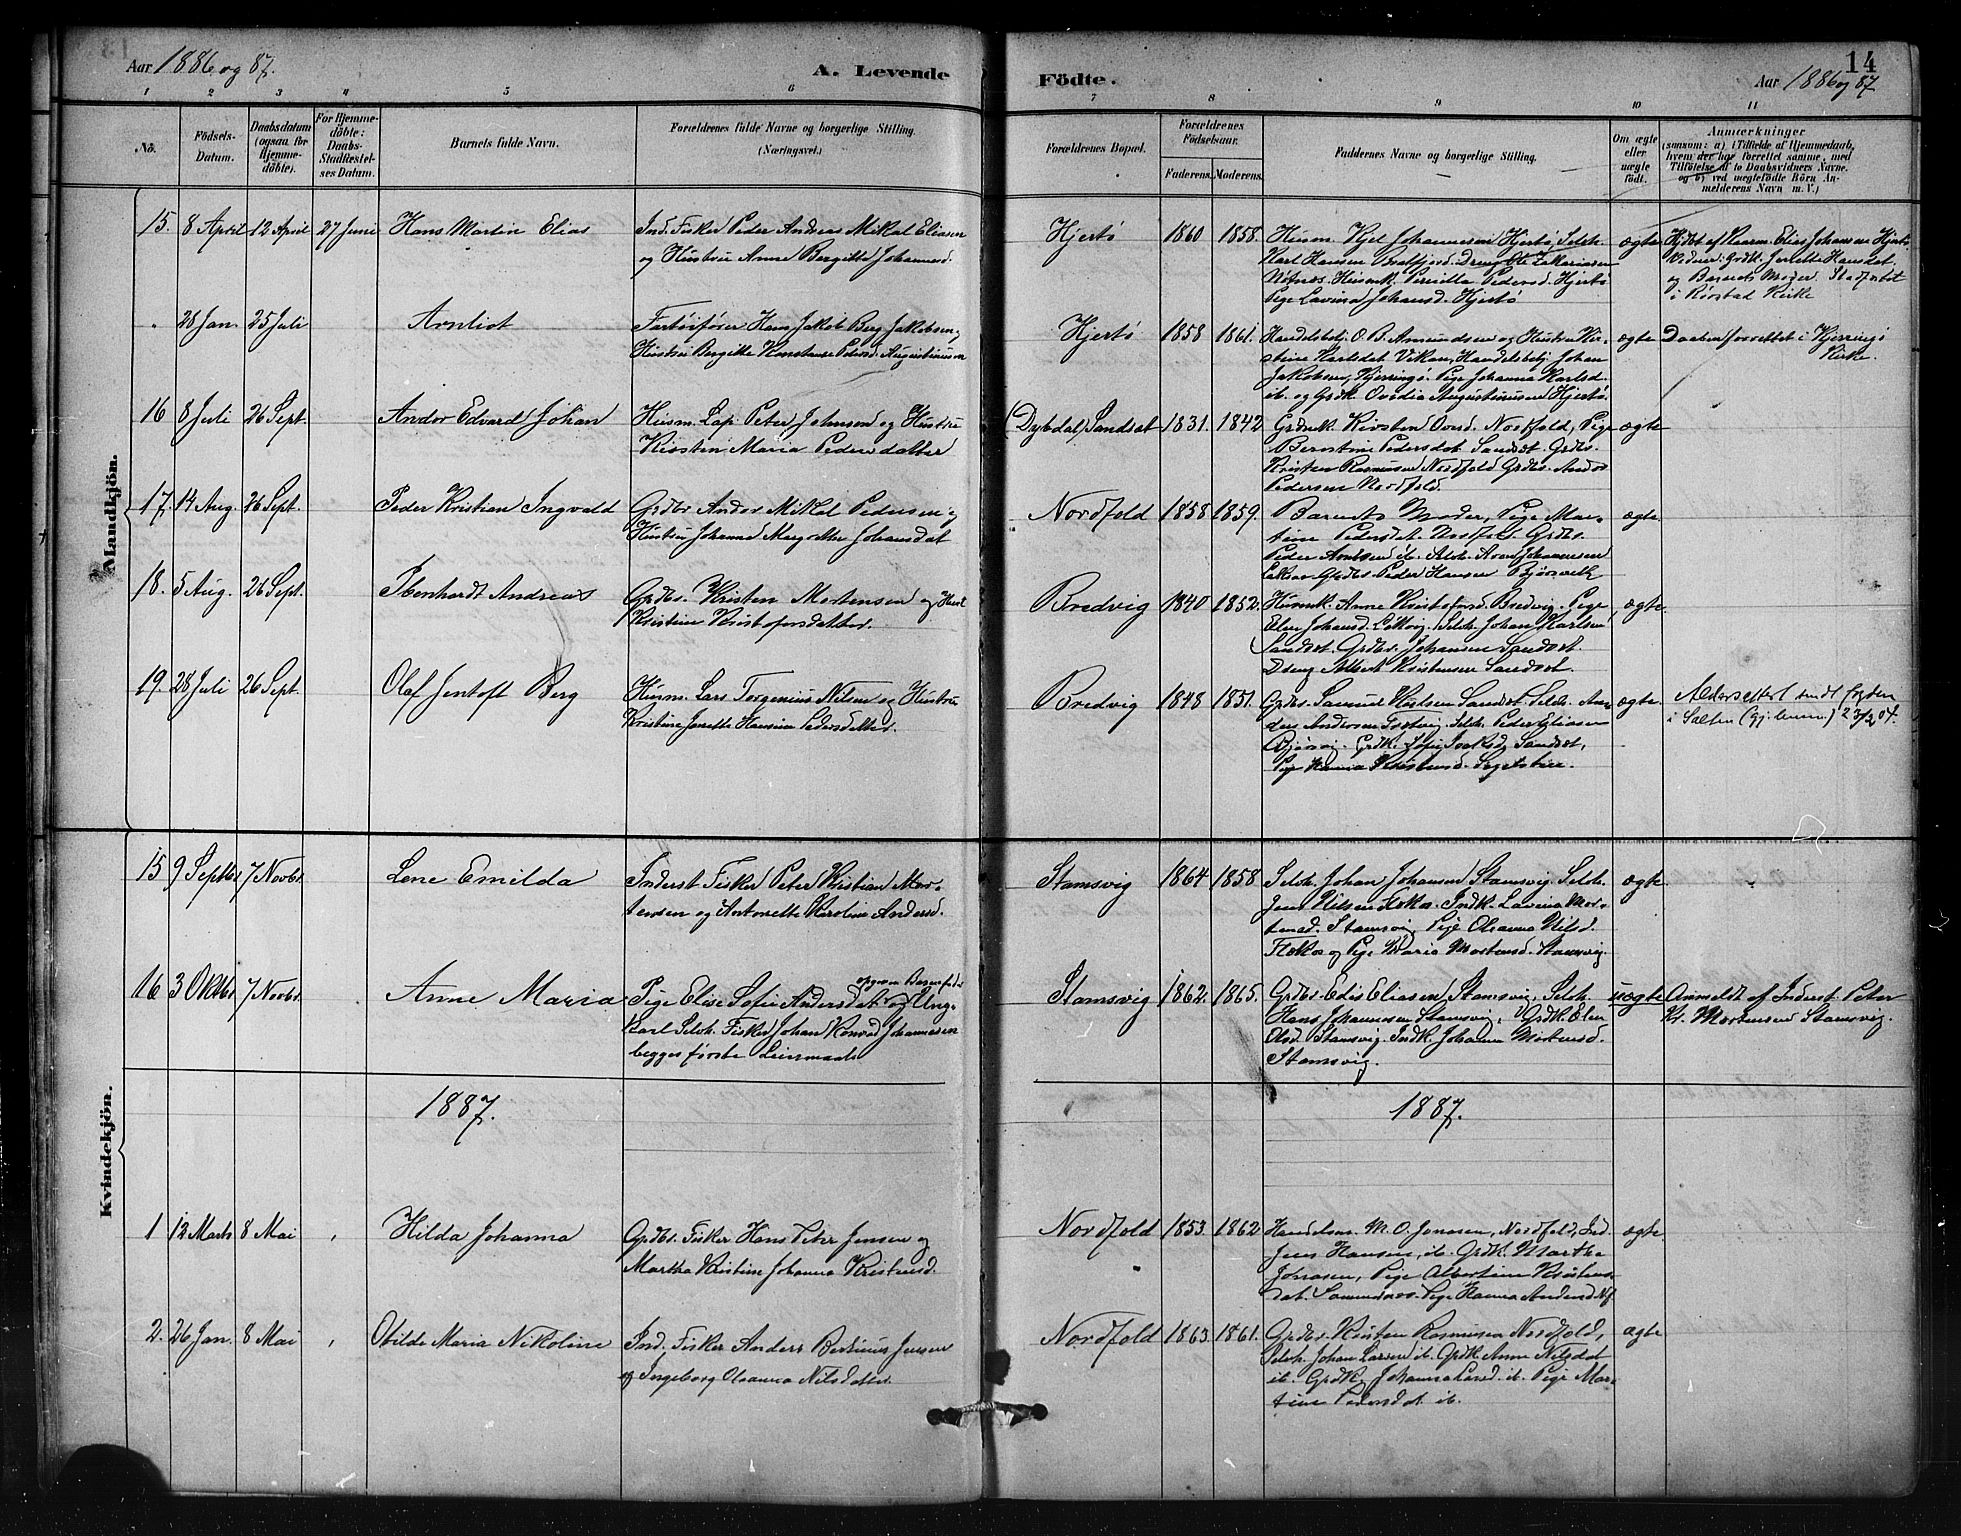 Aar 1886 og 87.
A. Levende
Födte.
14
Aar 1886 og 87
1 2 3 4 5 6 7 8 9 10 11
No.
Födsels-
Datum.
Daabsdatum
(ogsaa for
Hjemme-
döbte).
For Hjemme-
döbte:
Daabs-
Stadfæstel-
ses Datum.
Barnets fulde Navn.
Forældrenes fulde Navne og borgerlige Stilling.
(Næringsvei.)
Forældrenes Bopæl.
Forældrenes
Födselsaar.
Faderens. Moderens.
Faddernes Navne og borgerlige Stilling.
Om ægte
eller
uægte
födt.
Anmærkninger
(saasom: a) i Tilfælde af Hjemmedaab,
hvem der har forrettet samme, med
Tilföielse af to Daabsvidners Navne.
og b) ved uegtefödte Börn An-
melderens Navn m. V.)
Mandkjön.
15. 8 April 12 April 27 Juni Hans Martin Elias
Ind. Fisker Peder Andreas Mikal Eliasen
og Hustru Anne Bergitte Johannesd.
Hjertø 1860 1858.
Husm. Kjel Johannesen Hjertø, Selvh.
Karl Hansen
Pige Lavina Johansd. Hjertø
ægte
Hjdbt af Elias Johansen Hjertø
og Barnets Moder. Stadfæstet
i Rørstad Kirke
" 28 Jan. 25 Juli Arnliot
Fartøifører Hans Jakob Berg Jakobsen
Hustru Bergitte Konstanse Pedersd. Augustinussen
Hjertø 1858 1861.
Handelsbetj. O. B. Amundsen og Hustru Kir-
stine Karlsdat. Viken, Handelsbetj. Johan
Jakobsen, Kjerringø. Pige Johanna Karlsd.
ib. og Grdk. Ovidia Augustinussen Hjertø.
ægte
Daaben forrettet i Kjerringø
Kirke.
16 8 Juli 26 Sept. Andor Edvard Johan
Husm. Lap Peter Johnsen og Hustru
Kirsten Maria Pedersdatter
(Dybdal) Sandset 1831. 1842
Grdmk. Kirsten Nordfold, Pige
Berntine Pedersdat. Sandset Grdbs.
Kristen Rasmussen Nordfold Grdbs. Andor
Pedersen Nordfold.
ægte
17. 14 Aug. 26 Sept. Peder Kristian Ingvald
Grdbr. Andor Mikal Pedersen og
Hustru Johanna Margrethe Johansdat
Nordfold 1858 1859.
Barnets Moder, Pige Mar-
tine Pedersdat. Nordfold. Grdbs.
Peder Arntsen ib. Selvh. Johannesen
Grdbs. Peder Hansen Bjørsvik
ægte
18. 5 Aug. 26 Sept. Ebenhardt Andreas
Grdbs. Kristen Mortensen og Hust.
Kristine Kristofersdatter.
Bredvig 1840 1852.
Husmk. Anne Kristofersd. Bredvig. Pige
Elen Johansd. Løkvig. Selvh. Johan Karlsen
Sandset. Grdbr. Johansen Sandset.
Dreng Albert Kristensen Sandset.
ægte.
19. 28 Juli 26 Sept. Olaf Jentoft Berg
Husm. Lars Torgenius Nilsen og Hustru
Kristine Jonette Hansine Pedersdatter.
Bredvig 1848 1851.
Grdbs. Samuel Karlsen Sandset. Selvh. An-
ders Andersen Selvh. Peder Eliassen
Bjørsvig. Grdk. Sofie Sandset,
Pige Hanna
ægte.
Aldersattest sendt
i Salten (Gjelmen) 23/2 04.
Kvindekjön.
15 9 Septbr 7 Novbr. Lene Emilda
Inderst Fisker Peter Kristian Mor-
tensen og Antonette Karoline Andersd.
Stamsvig 1864 1858
Selvh. Johan Johansen Stamsvig. Selvh.
Jens Nilsen Flokos. Indk. Lavina Mor-
tensd. Stamsvig. Pige Oleanna Nilsd.
Flokos og Pige Maria Mortensd. Stamsvig
ægte
16 3 Oktbr 7 Novbr. Anne Maria
Pige Elise Sofie Andersdat. og Ung-
karl Selvh. Fisker Johan Konrad Johannesen
begges første Leiermaal
Stamsvig 1862. 1865.
Grdbr. Edis Eliasen Stamsvig, Selvh.
Hans Johannesen Stamsvig, Grdk. Elen
Olsd. Stamsvig. Indk. Johanna Mortensd.
Stamsvig.
uægte
Anmeldt af Inderst Peter
Kr. Mortensen Stamsvig.
1887.
1887.
1 12 Marts 8 Mai Hilda Johanna
Grdbr. Fisker Hans Peter Jensen og
Martha Kristine Johanna Kristensd.
Nordfold 1853. 1862
Handelsm. M. O. Jonasen, Nordfold, Ind.
Jens Hansen, ib. Grdk. Marthe
Jonasen, Pige Albertine Kristens-
dat. Pige Hanna Nf.
ægte.
2. 26 Jan. 8 Mai Otilde Maria Nikoline
Ind. Fisker Anders Bertinus Jensen
og Ingeborg Oleanna Nilsdatter.
Nordfold 1863. 1861.
Grdbr. Kristen Rasmusen Nordfold,
Selvh. Johan Larsen ib. Grdk. Anne Nilsdat
ib. Grdk. Johanna Larsd. ib. Pige Mar-
tine Pedersdat. ib.
ægte